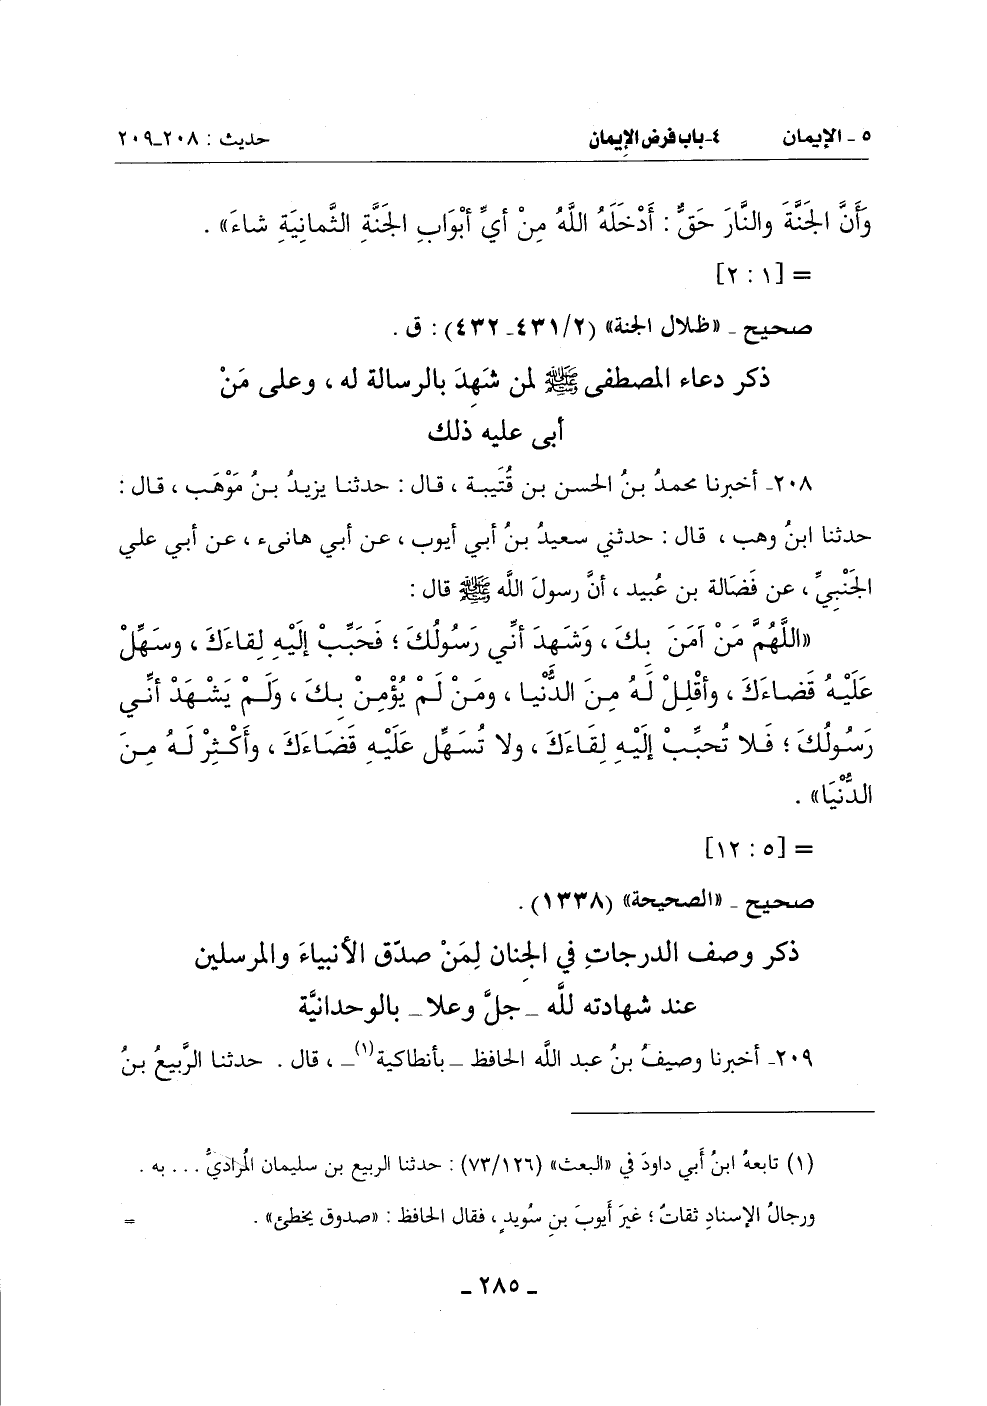 ٥ ـ الإيمان ٤ـ باب فرض الإيمان حديث : ٢٠٨ـ٢٠٩
وَأَنَّ الجَنَّةَ والنَّارَ حَقٌّ : أَدْخَلَهُ اللَّهُ مِنْ أيِّ أبْوَابِ الجَنَّةِ الثَّمانِيَةِ شاءَ» .
= [١ : ٢]
صحيح ـ «ظلال الجنة» (٢/ ٤٣١ـ ٤٣٢) : ق .
ذكر دعاء المصطفى ﷺ لمن شَهِدَ بالرسالة له ، وعلى مَنْ
أبى عليه ذلك
٢٠٨ـ أخبرنا محمدُ بنُ الحسن بن قُتَيبة ، قال : حدثنا يزيدُ بنُ مَوْهَب ، قال :
حدثنا ابنُ وهب ، قال : حدثني سعيدُ بنُ أبي أيوب ، عن أبي هانىء ، عن أبي علي
الجَنْبِيِّ ، عن فَضَالة بن عُبيد ، أنَّ رسولَ اللَّه ﷺ قال :
«اللَّهُمَّ مَنْ آمَنَ بِكَ ، وَشَهِدَ أنِّي رَسُولُكَ ؛ فَحَبِّبْ إلَيْهِ لِقاءَكَ ، وسَهِّلْ
عَلَيْهِ قَضاءَكَ ، وأقْلِلْ لَهُ مِنَ الدُّنْيا ، ومَنْ لَمْ يُؤْمِنْ بِكَ ، وَلَمْ يَشْهَدْ أنِّي
رَسُولُكَ ؛ فَلا تُحبِّبْ إلَيْهِ لِقَاءَكَ ، ولا تُسَهِّل عَلَيْهِ قَضَاءَكَ ، وأَكْثِرْ لَهُ مِنَ
الدُّنْيَا» .
= [٥ : ١٢]
صحيح ـ «الصحيحة» (١٣٣٨) .
ذكر وصف الدرجاتِ في الجِنان لِمَنْ صدّق الأنبياءَ والمرسلين
عند شهادته للَّه ـ جلَّ وعلا ـ بالوحدانيَّة
٢٠٩ـ أخبرنا وصيفُ بنُ عبد اللَّه الحافظ ـ بأنطاكية(١) ـ ، قال . حدثنا الرَّبيعُ بنُ
(١) تابعهُ ابنُ أبي داودَ في «البعث» (٧٣/١٢٦) : حدثنا الربيع بن سليمان المُراديُّ . . . به .
ورجالُ الإسنادِ ثقاتٌ ؛ غيرَ أيوبَ بنِ سُويدٍ ، فقال الحافظ : «صدوق يخطئ» . =
ـ ٢٨٥ ـ